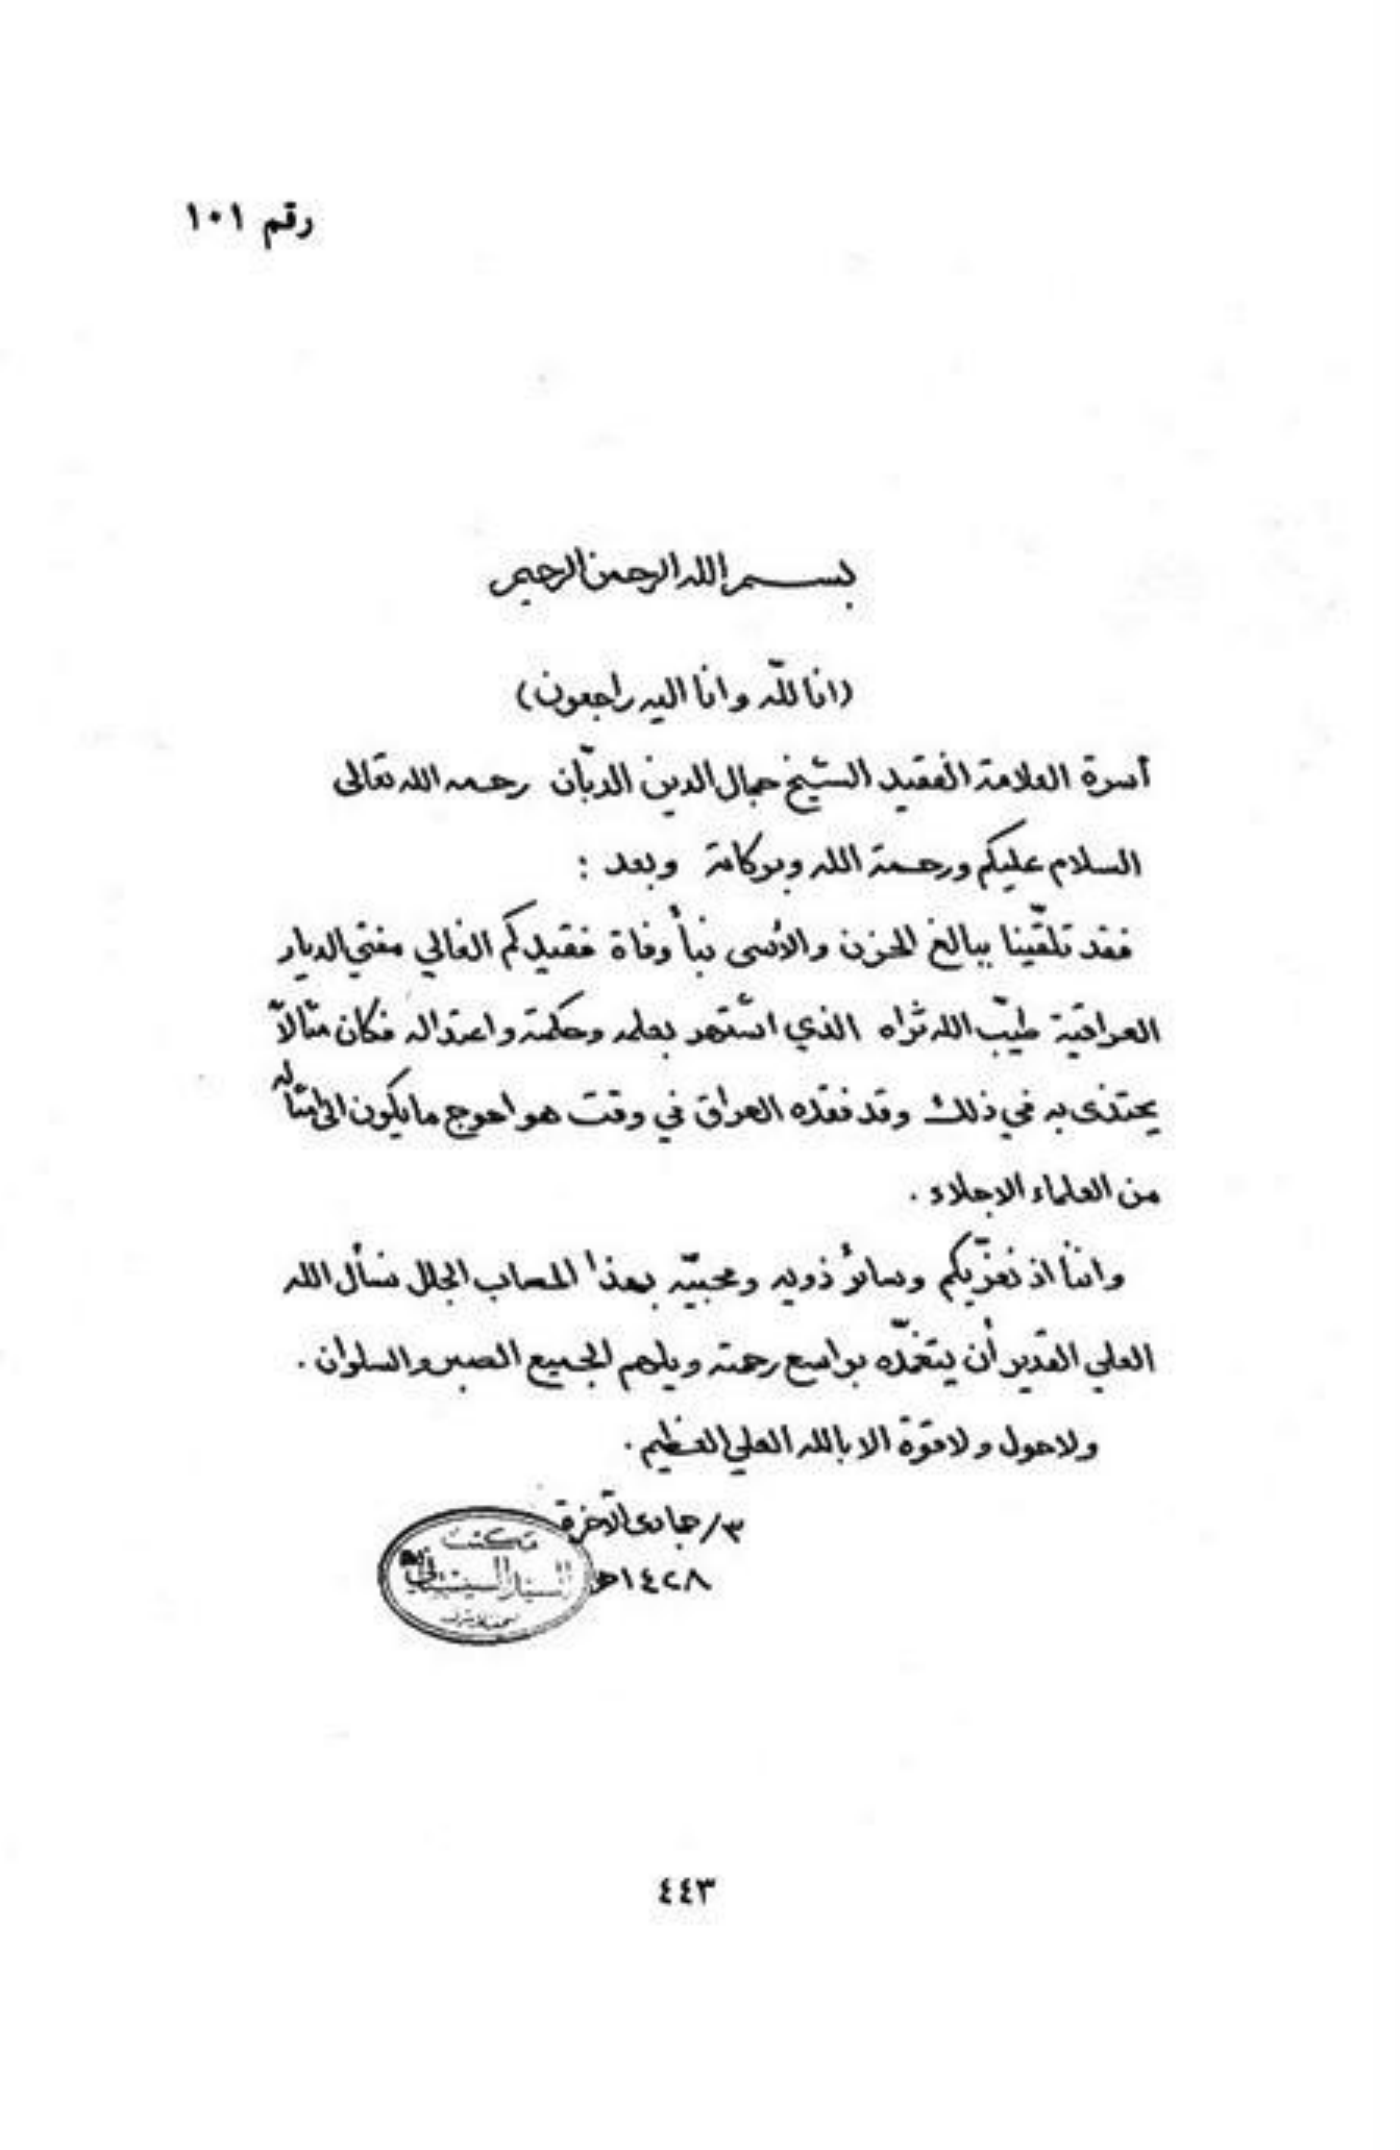 رقم ١٠١
بسم الله الرحمن الرحيم
(انا لله وانا اليه راجعون)
أسرة العلامة الفقيد الشيخ جمال الدين الدبّان رحمه الله تعالى
السلام عليكم ورحمة الله وبركاته وبعد :
فقد تلقّينا ببالغ الحزن والأسى نبأ وفاة فقيدكم الغالي مفتي الديار
العراقية طيّب الله ثراه الذي اشتهر بعلمه وحكمته واعتداله فكان مثالاً
يحتذى به في ذلك وقد فقده العراق في وقت هو احوج ما يكون الى امثاله
من العلماء الاجلاء .
واننا اذ نعزّيكم وسائر ذويه ومحبيّه بهذا المصاب الجلل نسأل الله
العلي القدير أن يتغمّده بواسع رحمته ويلهم الجميع الصبر والسلوان .
ولا حول ولا قوّة الا بالله العلي العظيم .
٣/ جمادى الآخرة
١٤٢٨هـ
مكتب
السيد السيستاني
النجف الاشرف
٤٤٣